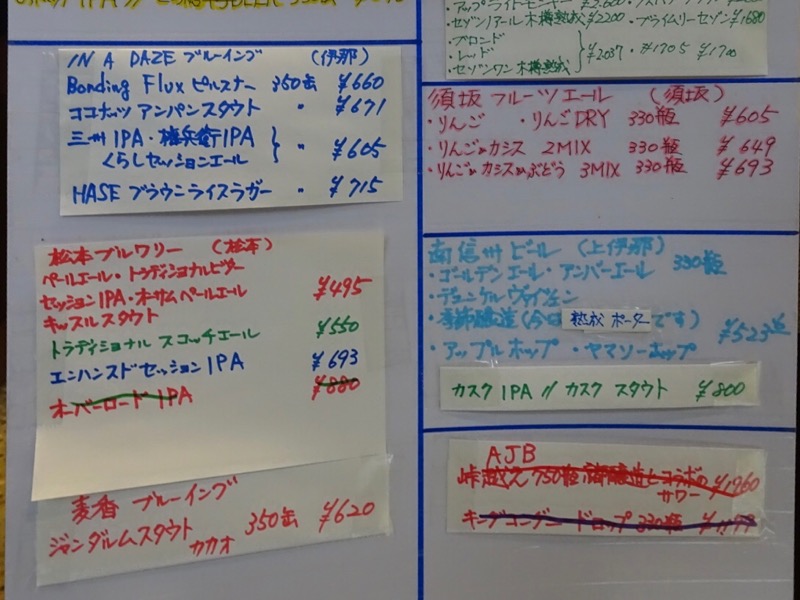 IN A DAZE ブルーイング (伊那)
Bonding Flux ピルスナー 350缶 ¥660
ココナッツ アンパンスタウト 〃 ¥671
三州IPA・権兵衛IPA
くらしセッションエール } 〃 ¥605
HASE ブラウンライスラガー 〃 ¥715
松本ブルワリー (松本)
ペールエール・トラディショナルビター
セッションIPA・オーサムペールエール ¥495
キャッスルスタウト
トラディショナル スコッチエール ¥550
エンハンスドセッションIPA ¥693
オーバーロードIPA ¥880
麦香 ブルーイング
ジャンダルムスタウト カカオ 350缶 ¥620
・セゾン ¥2200 ・プライムリーセゾン ¥1680
・ブロンド
・レッド } ¥2037
・セゾンワン 木樽熟成
須坂 フルーツエール (須坂)
・りんご ・りんごDRY 330瓶 ¥605
・りんご&カシス 2MIX 330瓶 ¥649
・りんご&カシス&ぶどう 3MIX 330瓶 ¥693
南信州ビール (上伊那)
・ゴールデンエール・アンバーエール 330瓶
・デュンケルヴァイツェン
・季節醸造(今日 熟成 ポーター です) ¥523
・アップルホップ ・ヤマソーホップ
カスク IPA // カスク スタウト ¥800
AJB
峠越え 750瓶 とコラボの サワー ¥1960
キングコング 330瓶